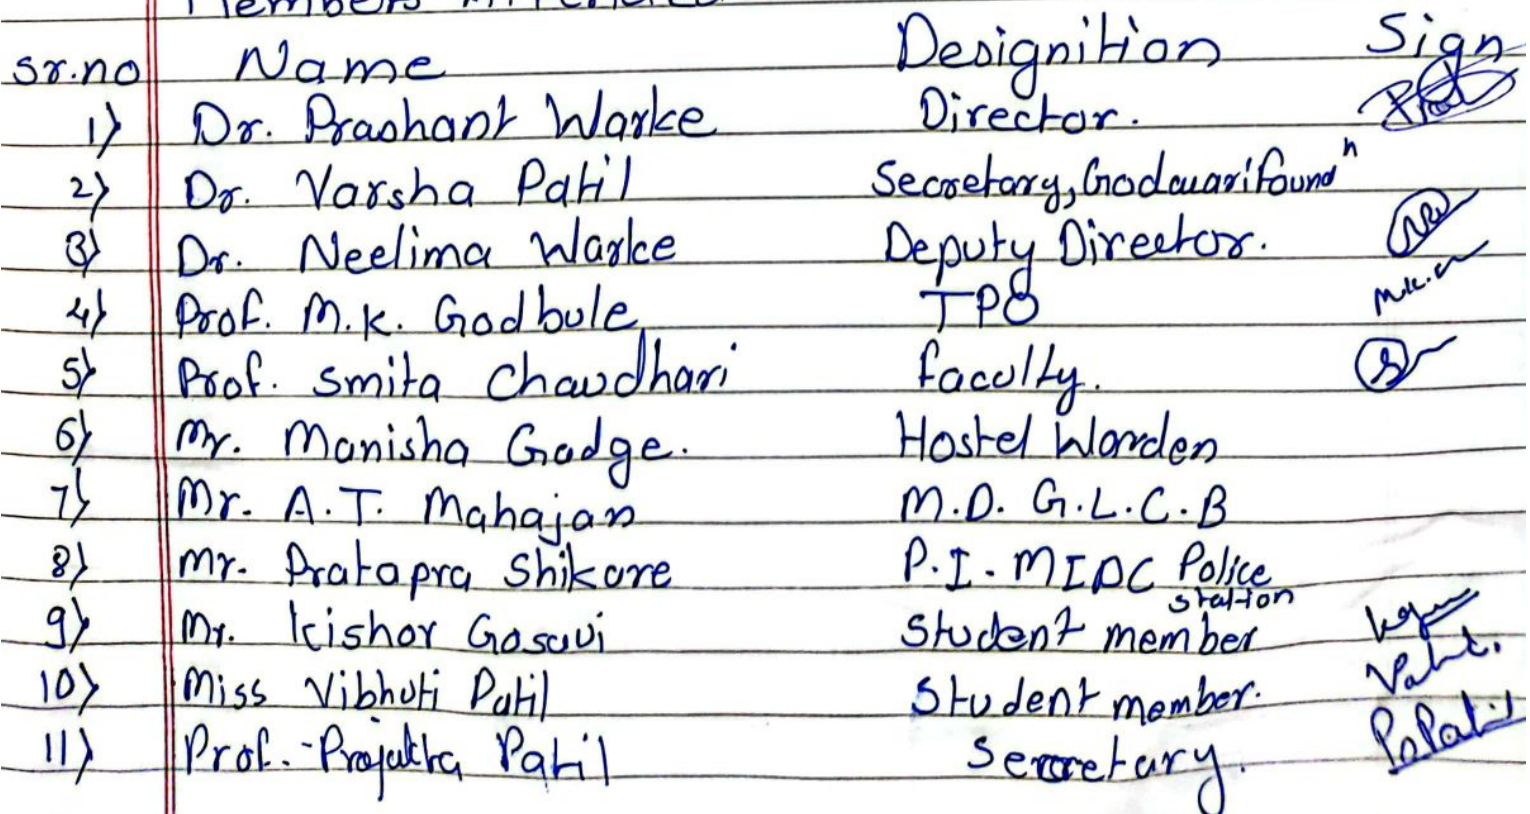 Members Attended
Sr.no Name Designition Sign
1) Dr. Prashant Warke Director.
2) Dr. Varsha Patil Secretary, Godavari foundn
3) Dr. Neelima Warke Deputy Director.
4) Prof. M.K. Godbole TPO M.K.
5) Prof. Smita Chaudhari faculty.
6) Mr. Manisha Gadge. Hostel Warden
7) Mr. A.T. Mahajan M.D. G.L.C.B
8) Mr. Pratapra Shikare P.I. MIDC Police
station
9) Mr. Kishor Gosavi Student member
10) Miss Vibhuti Patil Student member. Patil.
11) Prof. Prajakta Patil Secretary. P.Patil